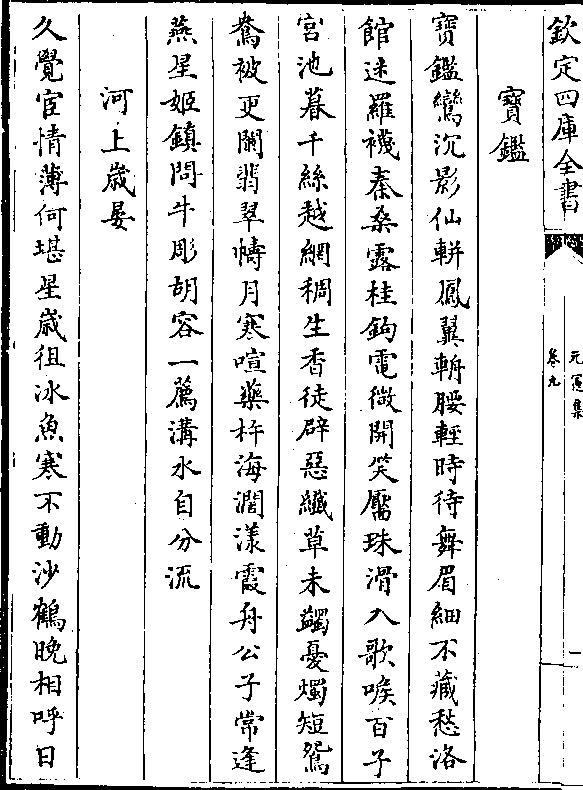 欽定四庫全書
元憲集
卷九
一
寶鑑
寶鑑鸞沉影仙軿鳳翼輈腰輕時待舞眉細不藏愁洛
館迷羅襪秦桑露桂鉤電微開笑靨珠滑入歌喉百子
宮池暮千絲越網稠生香徒辟惡纖草未蠲憂燭短鴛
鴦被更闌翡翠幬月寒喧藥杵海濶漾霞舟公子常逢
燕星姬鎮問牛彫胡容一薦溝水自分流
河上歲晏
久覺宦情薄何堪星歲徂冰魚寒不動沙鶴晚相呼日